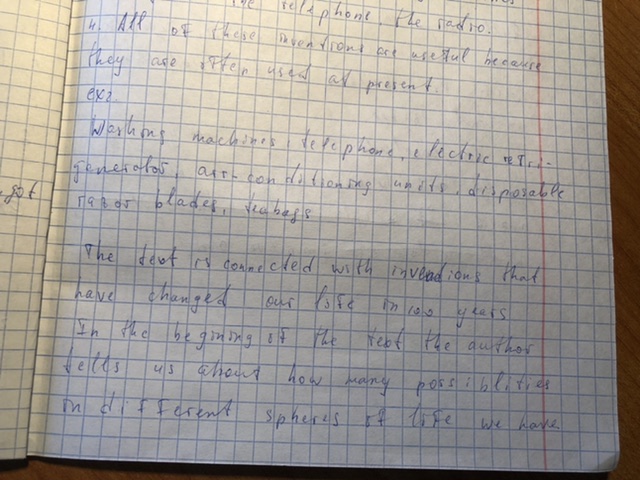 the telephone, the radio.
4. All of these inventions are useful because
they are often used at present.
ex2.
Washing machines, telephone, electric refri-
gerator, air-conditioning units, disposable
razor blades, teabags
The text is connected with inventions that
have changed our life in 100 years
In the begining of the text the author
tells us about how many possiblities
in different spheres of life we have